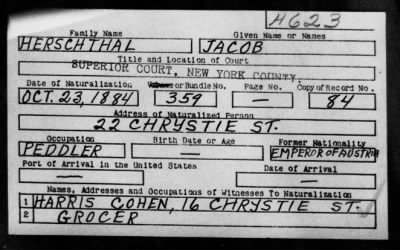 H623
Family Name Given Name or Names
HERSCHTHAL JACOB
Title and Location of Court
SUPERIOR COURT, NEW YORK COUNTY.
Date of Naturalization Volume or Bundle No. Page No. Copy of Record No.
OCT. 23, 1884 359 — 84
Address of Naturalized Person
22 CHRYSTIE ST.
Occupation Birth Date or Age Former Nationality
PEDDLER — EMPEROR OF AUSTRIA
Port of Arrival in the United States Date of Arrival
— —
Names, Addresses and Occupations of Witnesses To Naturalization
1 HARRIS COHEN, 16 CHRYSTIE ST.
2 GROCER